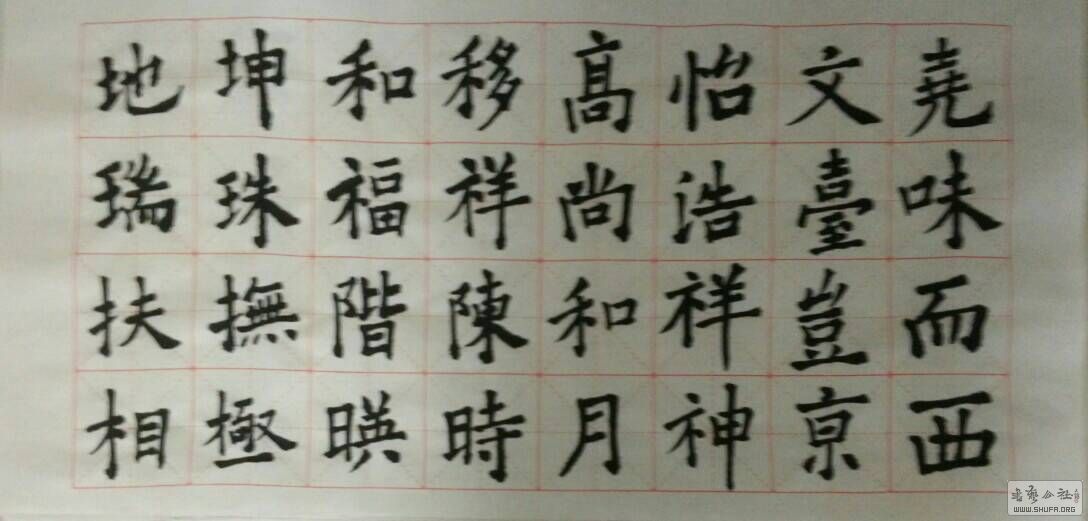 堯味而西
文臺豈京
怡浩祥神
高尚和月
移祥陳時
和福階暎
坤珠撫極
地瑞扶相
WWW.SHUFA.ORG